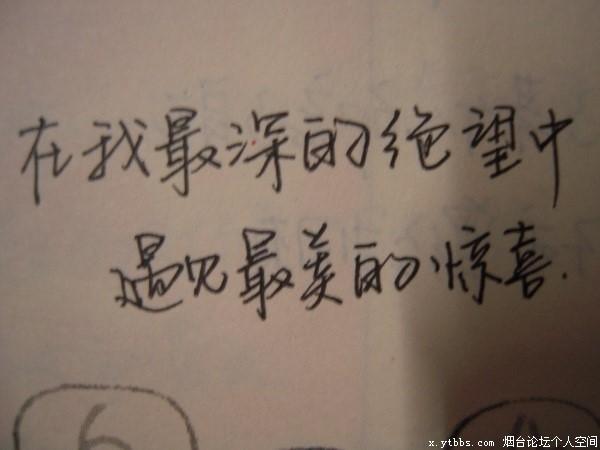 在我最深的绝望中
遇见最美的惊喜.
6
x.ytbbs.com 烟台论坛个人空间